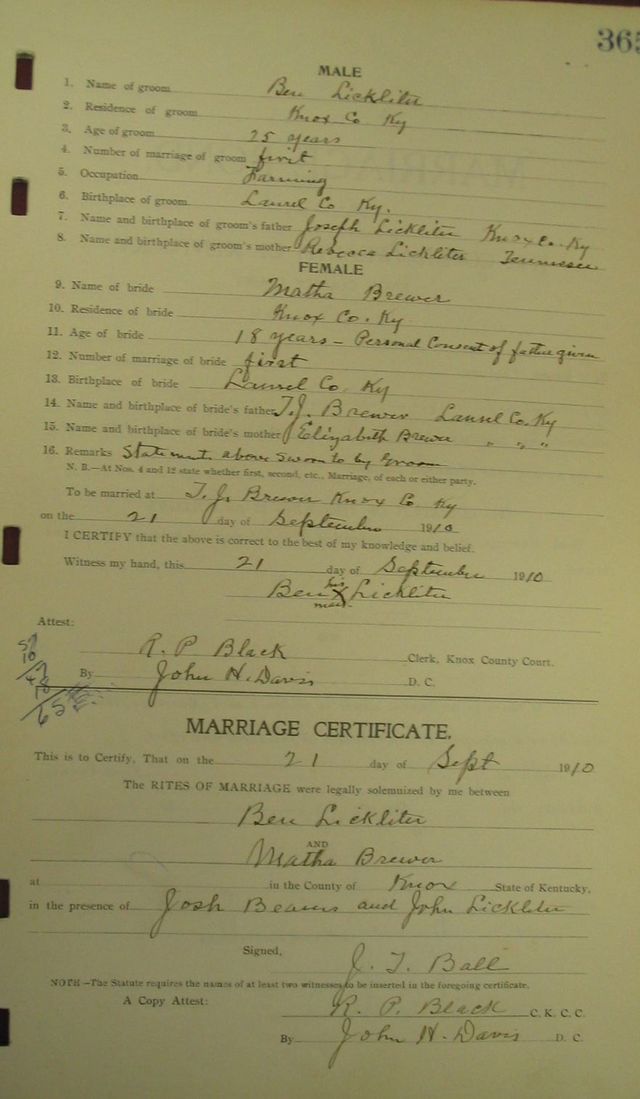 365
MALE
1. Name of groom Ben Lickliter
2. Residence of groom Knox Co Ky
3. Age of groom 25 years
4. Number of marriage of groom first
5. Occupation Farming
6. Birthplace of groom Laurel Co Ky.
7. Name and birthplace of groom's father Joseph Lickliter Knox Co. Ky
8. Name and birthplace of groom's mother Rebecca Lickliter Tennessee
FEMALE
9. Name of bride Matha Brewer
10. Residence of bride Knox Co. Ky
11. Age of bride 18 years – Personal Consent of father given
12. Number of marriage of bride first
13. Birthplace of bride Laurel Co. Ky
14. Name and birthplace of bride's father T. J. Brewer Laurel Co. Ky
15. Name and birthplace of bride's mother Elizabeth Brewer " " "
16. Remarks Statements above sworn to by Groom
N. B.—At Nos. 4 and 12 state whether first, second, etc., Marriage, of each or either party.
To be married at T. J. Brewer Knox Co Ky
on the 21 day of September 1910
I CERTIFY that the above is correct to the best of my knowledge and belief.
Witness my hand, this 21 day of September 1910
Ben his X mark Lickliter
Attest:
R. P Black Clerk, Knox County Court.
By John H. Davis D. C.
MARRIAGE CERTIFICATE.
This is to Certify, That on the 21 day of Sept 1910
The RITES OF MARRIAGE were legally solemnized by me between
Ben Lickliter
AND
Matha Brewer
at in the County of Knox State of Kentucky,
in the presence of Josh Beams and John Lickliter
Signed, J. T. Ball
NOTE—The Statute requires the names of at least two witnesses to be inserted in the foregoing certificate.
A Copy Attest: R. P. Black C. K. C. C.
By John H. Davis D. C.